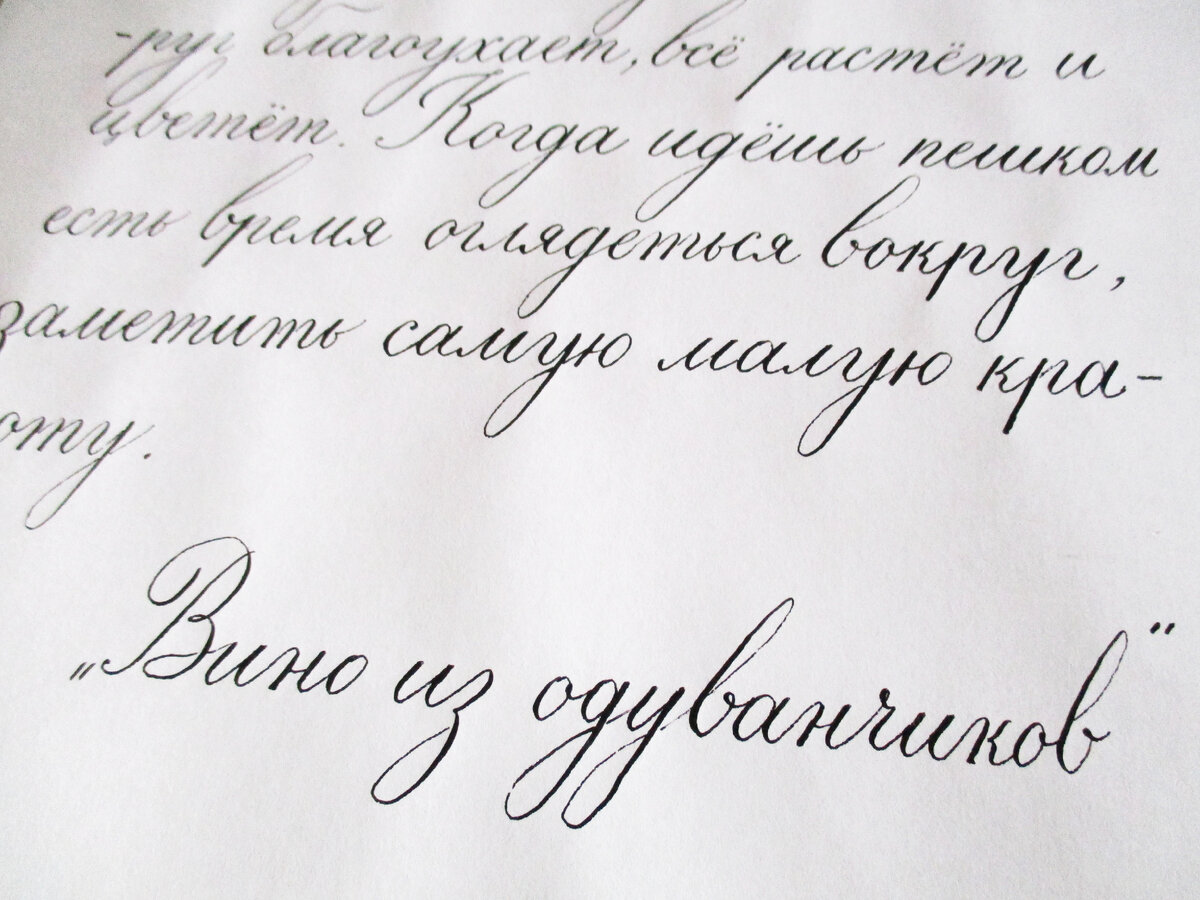 -руг благоухает, всё растёт и
цветёт. Когда идёшь пешком
есть время оглядеться вокруг,
заметить самую малую кра-
оту.
„Вино из одуванчиков"